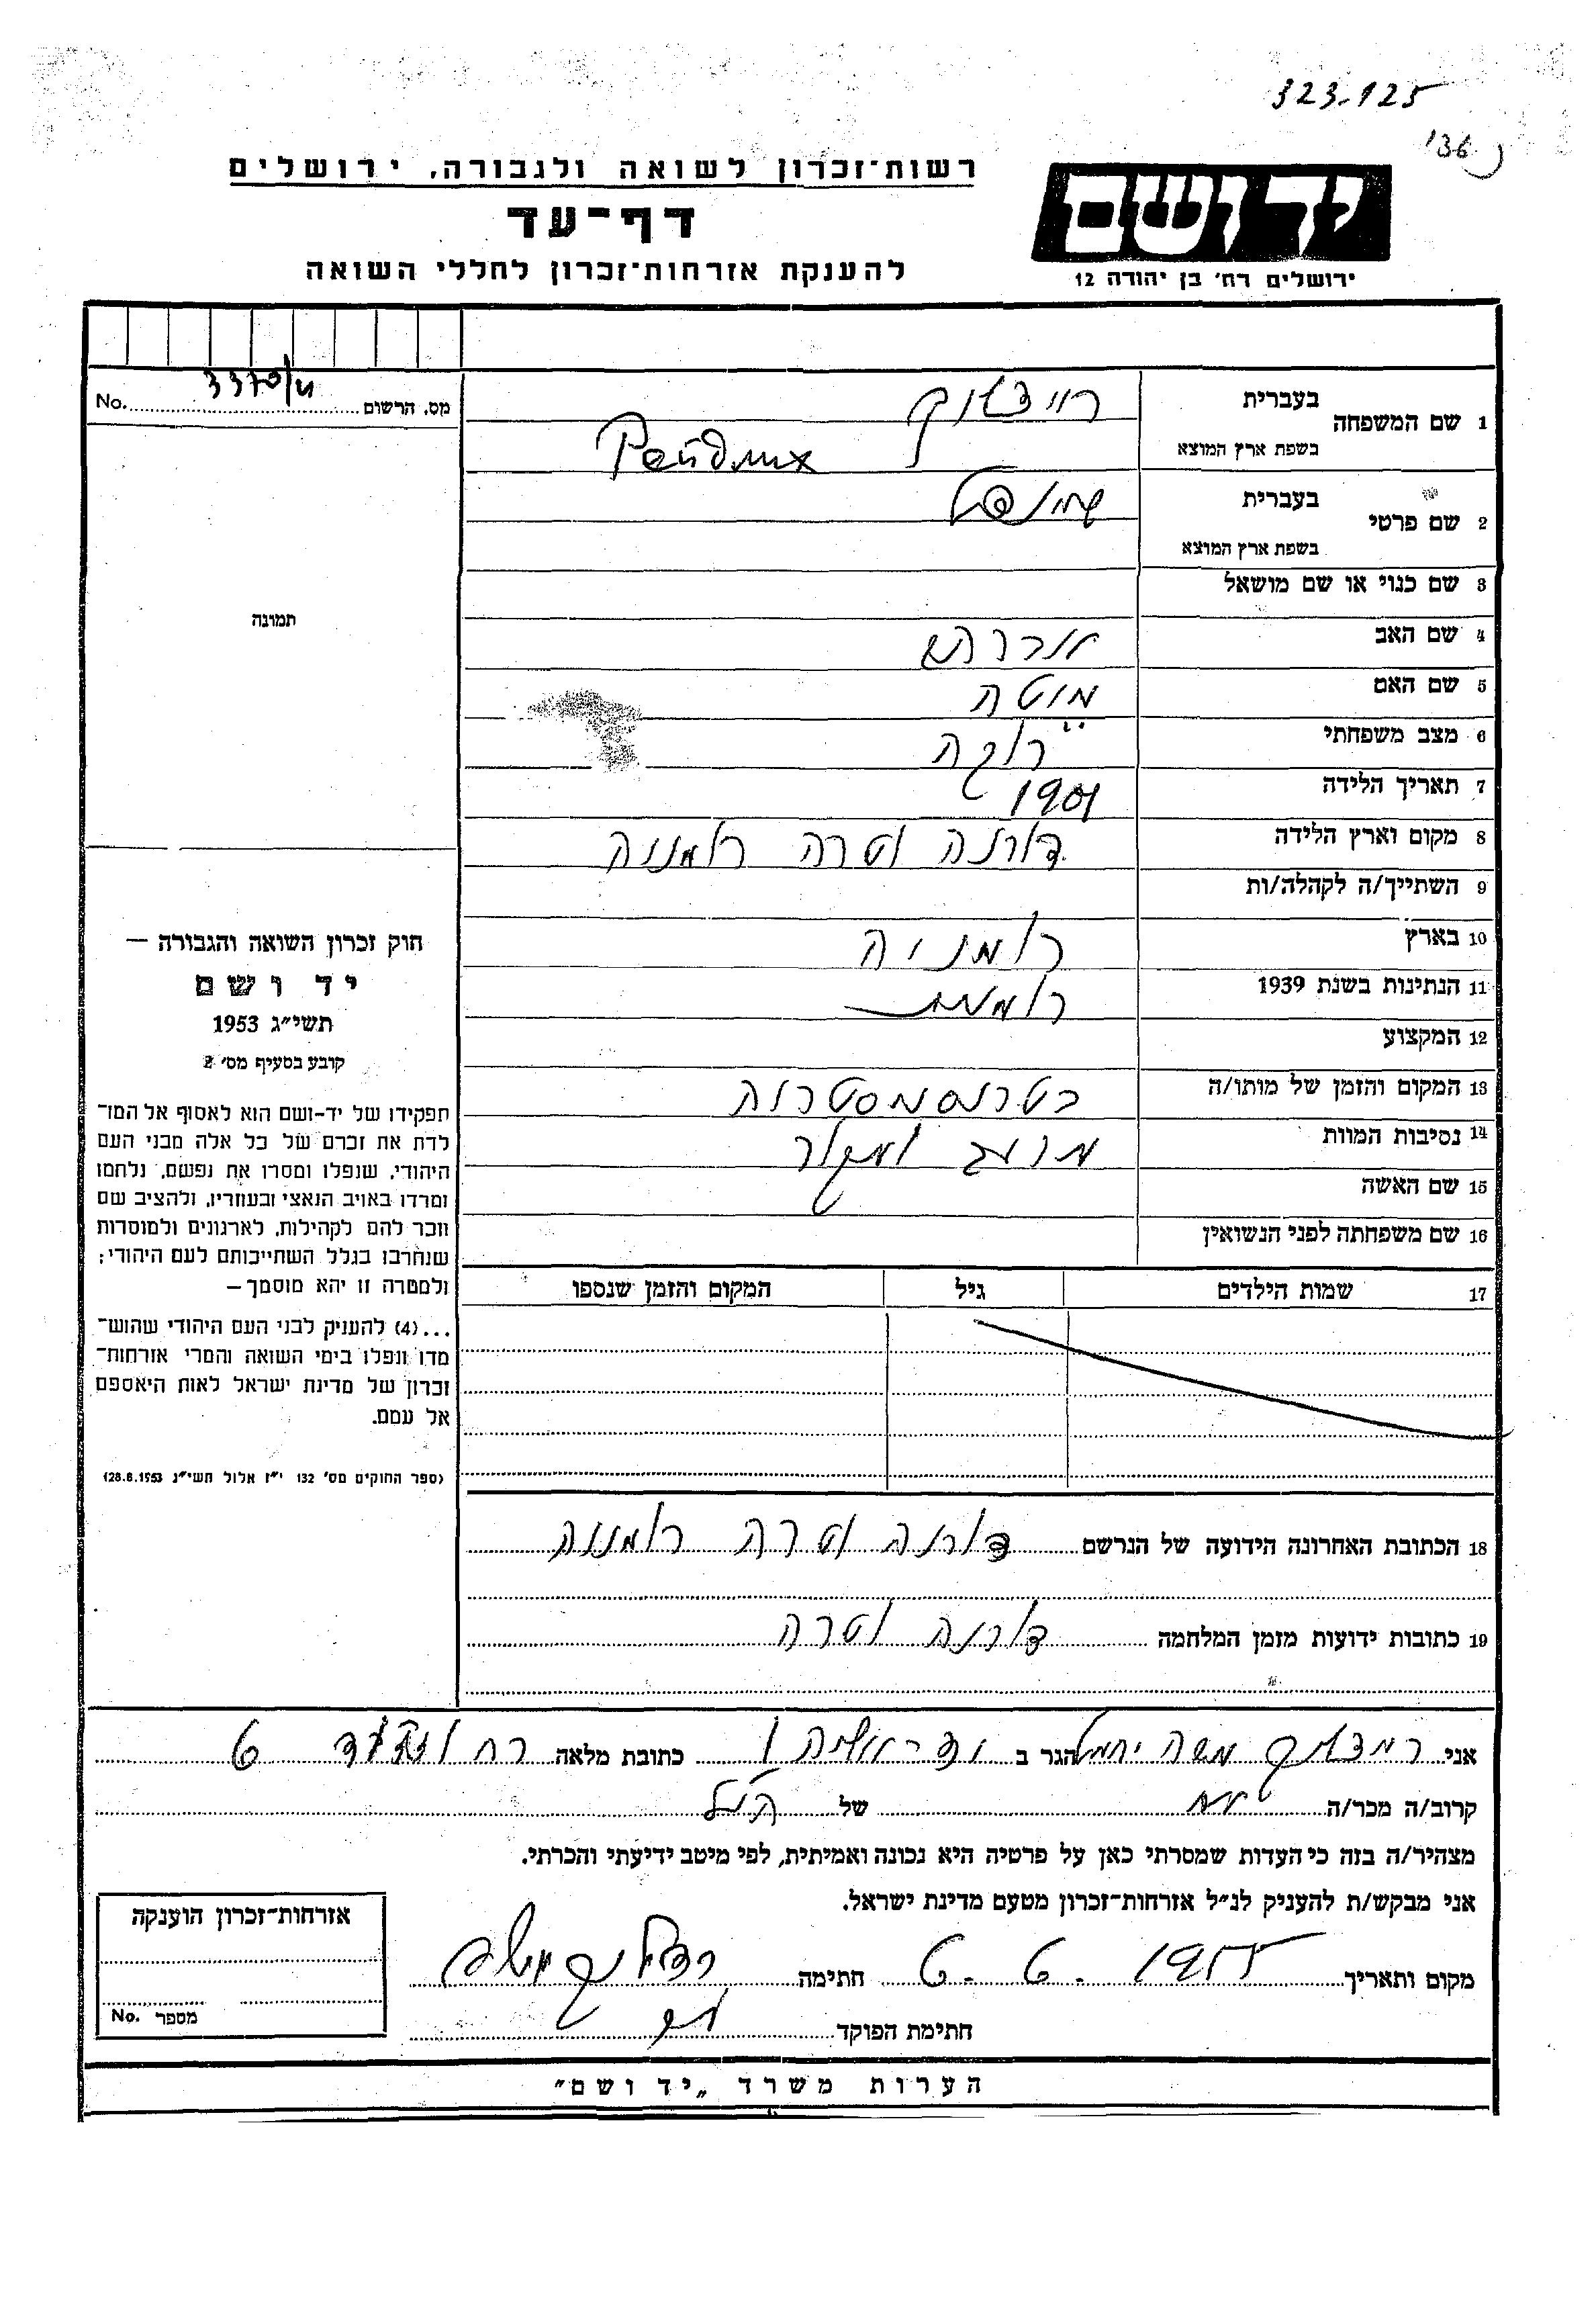 323-125
136
רשות-זכרון לשואה ולגבורה, ירושלים
דף-עד
להענקת אזרחות-זכרון לחללי השואה
יד ושם
ירושלים רח' בן יהודה 12
מס. הרשום No.
תמונה
1 שם המשפחה
בעברית
בשפת ארץ המוצא
2 שם פרטי
בעברית
בשפת ארץ המוצא
3 שם כנוי או שם מושאל
4 שם האב אברהם
5 שם האם
6 מצב משפחתי רוקה
7 תאריך הלידה 1901
8 מקום וארץ הלידה דורנה וטרה רומניה
9 השתייך/ה לקהלה/ות
10 בארץ רומניה
11 הנתינות בשנת 1939 רומנית
12 המקצוע
13 המקום והזמן של מותו/ה
14 נסיבות המוות מרעב
15 שם האשה
16 שם משפחתה לפני הנשואין
17 שמות הילדים גיל המקום והזמן שנספו
18 הכתובת האחרונה הידועה של הנרשם דורנה וטרה רומניה
19 כתובות ידועות מזמן המלחמה דורנה וטרה
חוק זכרון השואה והגבורה —
יד ושם
תשי"ג 1953
קובע בסעיף מס' 2
תפקידו של יד-ושם הוא לאסוף אל המו־
לדת את זכרם של כל אלה מבני העם
היהודי, שנפלו ומסרו את נפשם, נלחמו
ומרדו באויב הנאצי ובעוזריו, ולהציב שם
וזכר להם לקהילות, לארגונים ולמוסדות
שנחרבו בגלל השתייכותם לעם היהודי;
ולמטרה זו יהא מוסמך —
...(4) להעניק לבני העם היהודי שהוש־
מדו ונפלו בימי השואה והמרי אזרחות־
זכרון של מדינת ישראל לאות היאספם
אל עמם.
(ספר החוקים מס' 132 י"ז אלול תשי"ג 28.8.1953)
אני משה הגר ב כתובת מלאה רח
קרוב/ה מכר/ה של הנ"ל
מצהיר/ה בזה כי העדות שמסרתי כאן על פרטיה היא נכונה ואמיתית, לפי מיטב ידיעתי והכרתי.
אני מבקש/ת להעניק לנ"ל אזרחות-זכרון מטעם מדינת ישראל.
מקום ותאריך 1955 חתימה
חתימת הפוקד
אזרחות-זכרון הוענקה
מספר No.
הערות משרד „יד ושם"